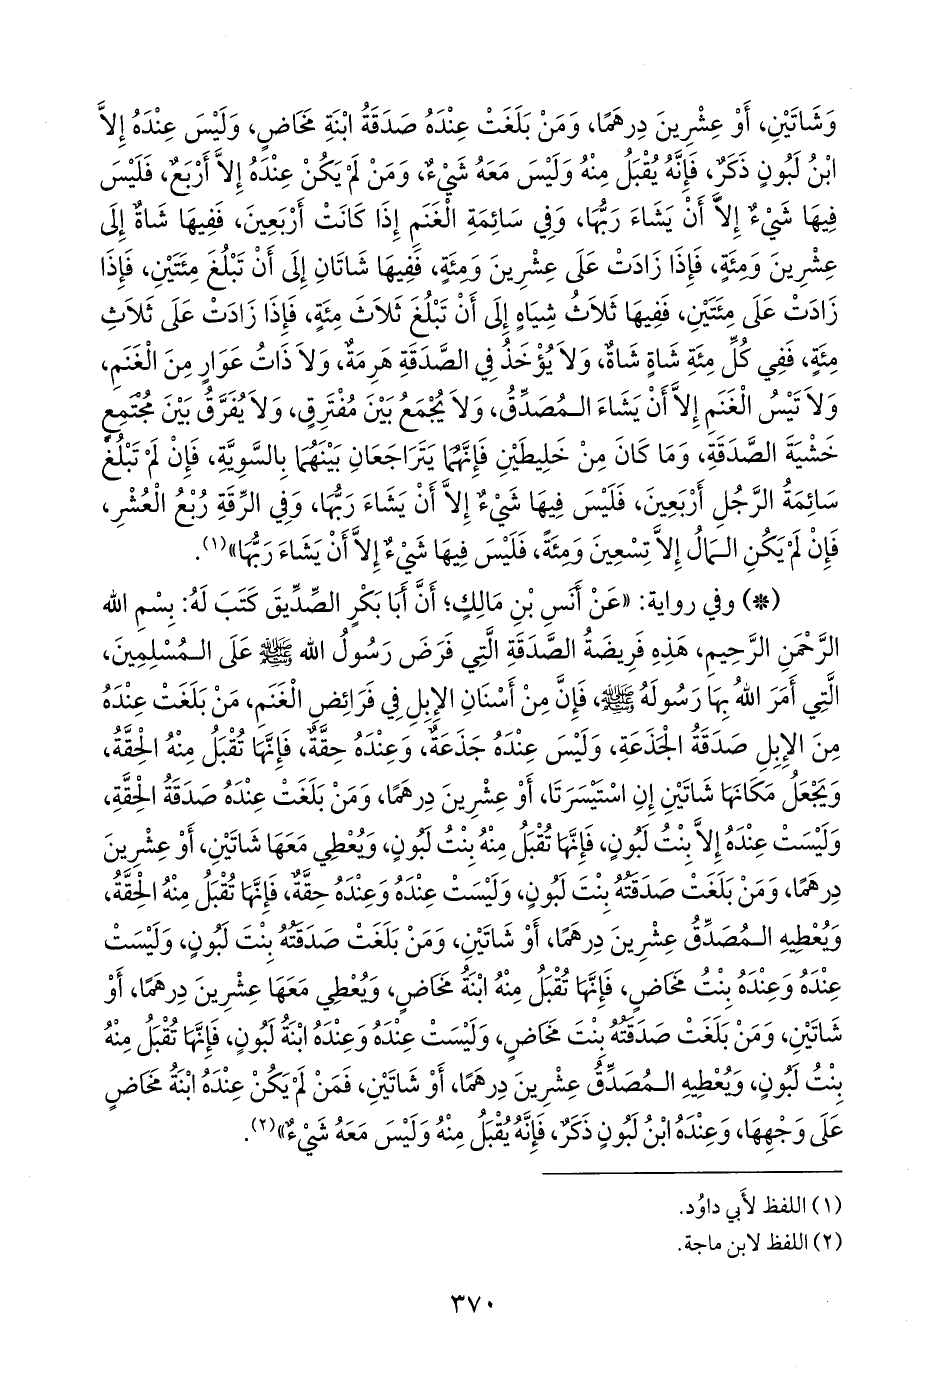 وَشَاتَيْنِ، أَوْ عِشْرِينَ دِرهَمًا، وَمَنْ بَلَغَتْ عِنْدَهُ صَدَقَةُ ابْنَةِ مَخَاضٍ، وَلَيْسَ عِنْدَهُ إِلاَّ
ابْنُ لَبُونٍ ذَكَرٌ، فَإِنَّهُ يُقْبَلُ مِنْهُ وَلَيْسَ مَعَهُ شَيْءٌ، وَمَنْ لَمْ يَكُنْ عِنْدَهُ إِلاَّ أَرْبَعٌ، فَلَيْسَ
فِيهَا شَيْءٌ إِلاَّ أَنْ يَشَاءَ رَبُّهَا، وَفِي سَائِمَةِ الْغَنَمِ إِذَا كَانَتْ أَرْبَعِينَ، فَفِيهَا شَاةٌ إِلَى
عِشْرِينَ وَمِئَةٍ، فَإِذَا زَادَتْ عَلَى عِشْرِينَ وَمِئَةٍ، فَفِيهَا شَاتَانِ إِلَى أَنْ تَبْلُغَ مِئَتَيْنِ، فَإِذَا
زَادَتْ عَلَى مِئَتَيْنِ، فَفِيهَا ثَلاَثُ شِيَاهٍ إِلَى أَنْ تَبْلُغَ ثَلاَثَ مِئَةٍ، فَإِذَا زَادَتْ عَلَى ثَلاَثِ
مِئَةٍ، فَفِي كُلِّ مِئَةِ شَاةٍ شَاةٌ، وَلاَ يُؤْخَذُ فِي الصَّدَقَةِ هَرِمَةٌ، وَلاَ ذَاتُ عَوَارٍ مِنَ الْغَنَمِ،
وَلاَ تَيْسُ الْغَنَمِ إِلاَّ أَنْ يَشَاءَ الـمُصَدِّقُ، وَلاَ يُجْمَعُ بَيْنَ مُفْتَرِقٍ، وَلاَ يُفَرَّقُ بَيْنَ مُجْتَمِعٍ
خَشْيَةَ الصَّدَقَةِ، وَمَا كَانَ مِنْ خَلِيطَيْنِ فَإِنَّهُمَا يَتَرَاجَعَانِ بَيْنَهُمَا بِالسَّوِيَّةِ، فَإِنْ لَمْ تَبْلُغْ
سَائِمَةُ الرَّجُلِ أَرْبَعِينَ، فَلَيْسَ فِيهَا شَيْءٌ إِلاَّ أَنْ يَشَاءَ رَبُّهَا، وَفِي الرِّقَةِ رُبْعُ الْعُشْرِ،
فَإِنْ لَمْ يَكُنِ الـمَالُ إِلاَّ تِسْعِينَ وَمِئَةً، فَلَيْسَ فِيهَا شَيْءٌ إِلاَّ أَنْ يَشَاءَ رَبُّهَا»(١).
(*) وفي رواية: «عَنْ أَنَسِ بْنِ مَالِكٍ؛ أَنَّ أَبَا بَكْرٍ الصِّدِّيقَ كَتَبَ لَهُ: بِسْمِ الله
الرَّحْمَنِ الرَّحِيمِ، هَذِهِ فَرِيضَةُ الصَّدَقَةِ الَّتِي فَرَضَ رَسُولُ الله ﷺ عَلَى الـمُسْلِمِينَ،
الَّتِي أَمَرَ اللهُ بِهَا رَسُولَهُ ﷺ، فَإِنَّ مِنْ أَسْنَانِ الإِبِلِ فِي فَرَائِضِ الْغَنَمِ، مَنْ بَلَغَتْ عِنْدَهُ
مِنَ الإِبِلِ صَدَقَةُ الجَذَعَةِ، وَلَيْسَ عِنْدَهُ جَذَعَةٌ، وَعِنْدَهُ حِقَّةٌ، فَإِنَّهَا تُقْبَلُ مِنْهُ الحِقَّةُ،
وَيَجْعَلُ مَكَانَهَا شَاتَيْنِ إِنِ اسْتَيْسَرَتَا، أَوْ عِشْرِينَ دِرهَمًا، وَمَنْ بَلَغَتْ عِنْدَهُ صَدَقَةُ الحِقَّةِ،
وَلَيْسَتْ عِنْدَهُ إِلاَّ بِنْتُ لَبُونٍ، فَإِنَّهَا تُقْبَلُ مِنْهُ بِنْتُ لَبُونٍ، وَيُعْطِي مَعَهَا شَاتَيْنِ، أَوْ عِشْرِينَ
دِرهَمًا، وَمَنْ بَلَغَتْ صَدَقَتُهُ بِنْتَ لَبُونٍ، وَلَيْسَتْ عِنْدَهُ وَعِنْدَهُ حِقَّةٌ، فَإِنَّهَا تُقْبَلُ مِنْهُ الحِقَّةُ،
وَيُعْطِيهِ الـمُصَدِّقُ عِشْرِينَ دِرهَمًا، أَوْ شَاتَيْنِ، وَمَنْ بَلَغَتْ صَدَقَتُهُ بِنْتَ لَبُونٍ، وَلَيْسَتْ
عِنْدَهُ وَعِنْدَهُ بِنْتُ مَخَاضٍ، فَإِنَّهَا تُقْبَلُ مِنْهُ ابْنَةُ مَخَاضٍ، وَيُعْطِي مَعَهَا عِشْرِينَ دِرهَمًا، أَوْ
شَاتَيْنِ، وَمَنْ بَلَغَتْ صَدَقَتُهُ بِنْتَ مَخَاضٍ، وَلَيْسَتْ عِنْدَهُ وَعِنْدَهُ ابْنَةُ لَبُونٍ، فَإِنَّهَا تُقْبَلُ مِنْهُ
بِنْتُ لَبُونٍ، وَيُعْطِيهِ الـمُصَدِّقُ عِشْرِينَ دِرهَمًا، أَوْ شَاتَيْنِ، فَمَنْ لَمْ يَكُنْ عِنْدَهُ ابْنَةُ مَخَاضٍ
عَلَى وَجْهِهَا، وَعِنْدَهُ ابْنُ لَبُونٍ ذَكَرٌ، فَإِنَّهُ يُقْبَلُ مِنْهُ وَلَيْسَ مَعَهُ شَيْءٌ»(٢).
(١) اللفظ لأَبي داوُد.
(٢) اللفظ لابن ماجة.
٣٧٠